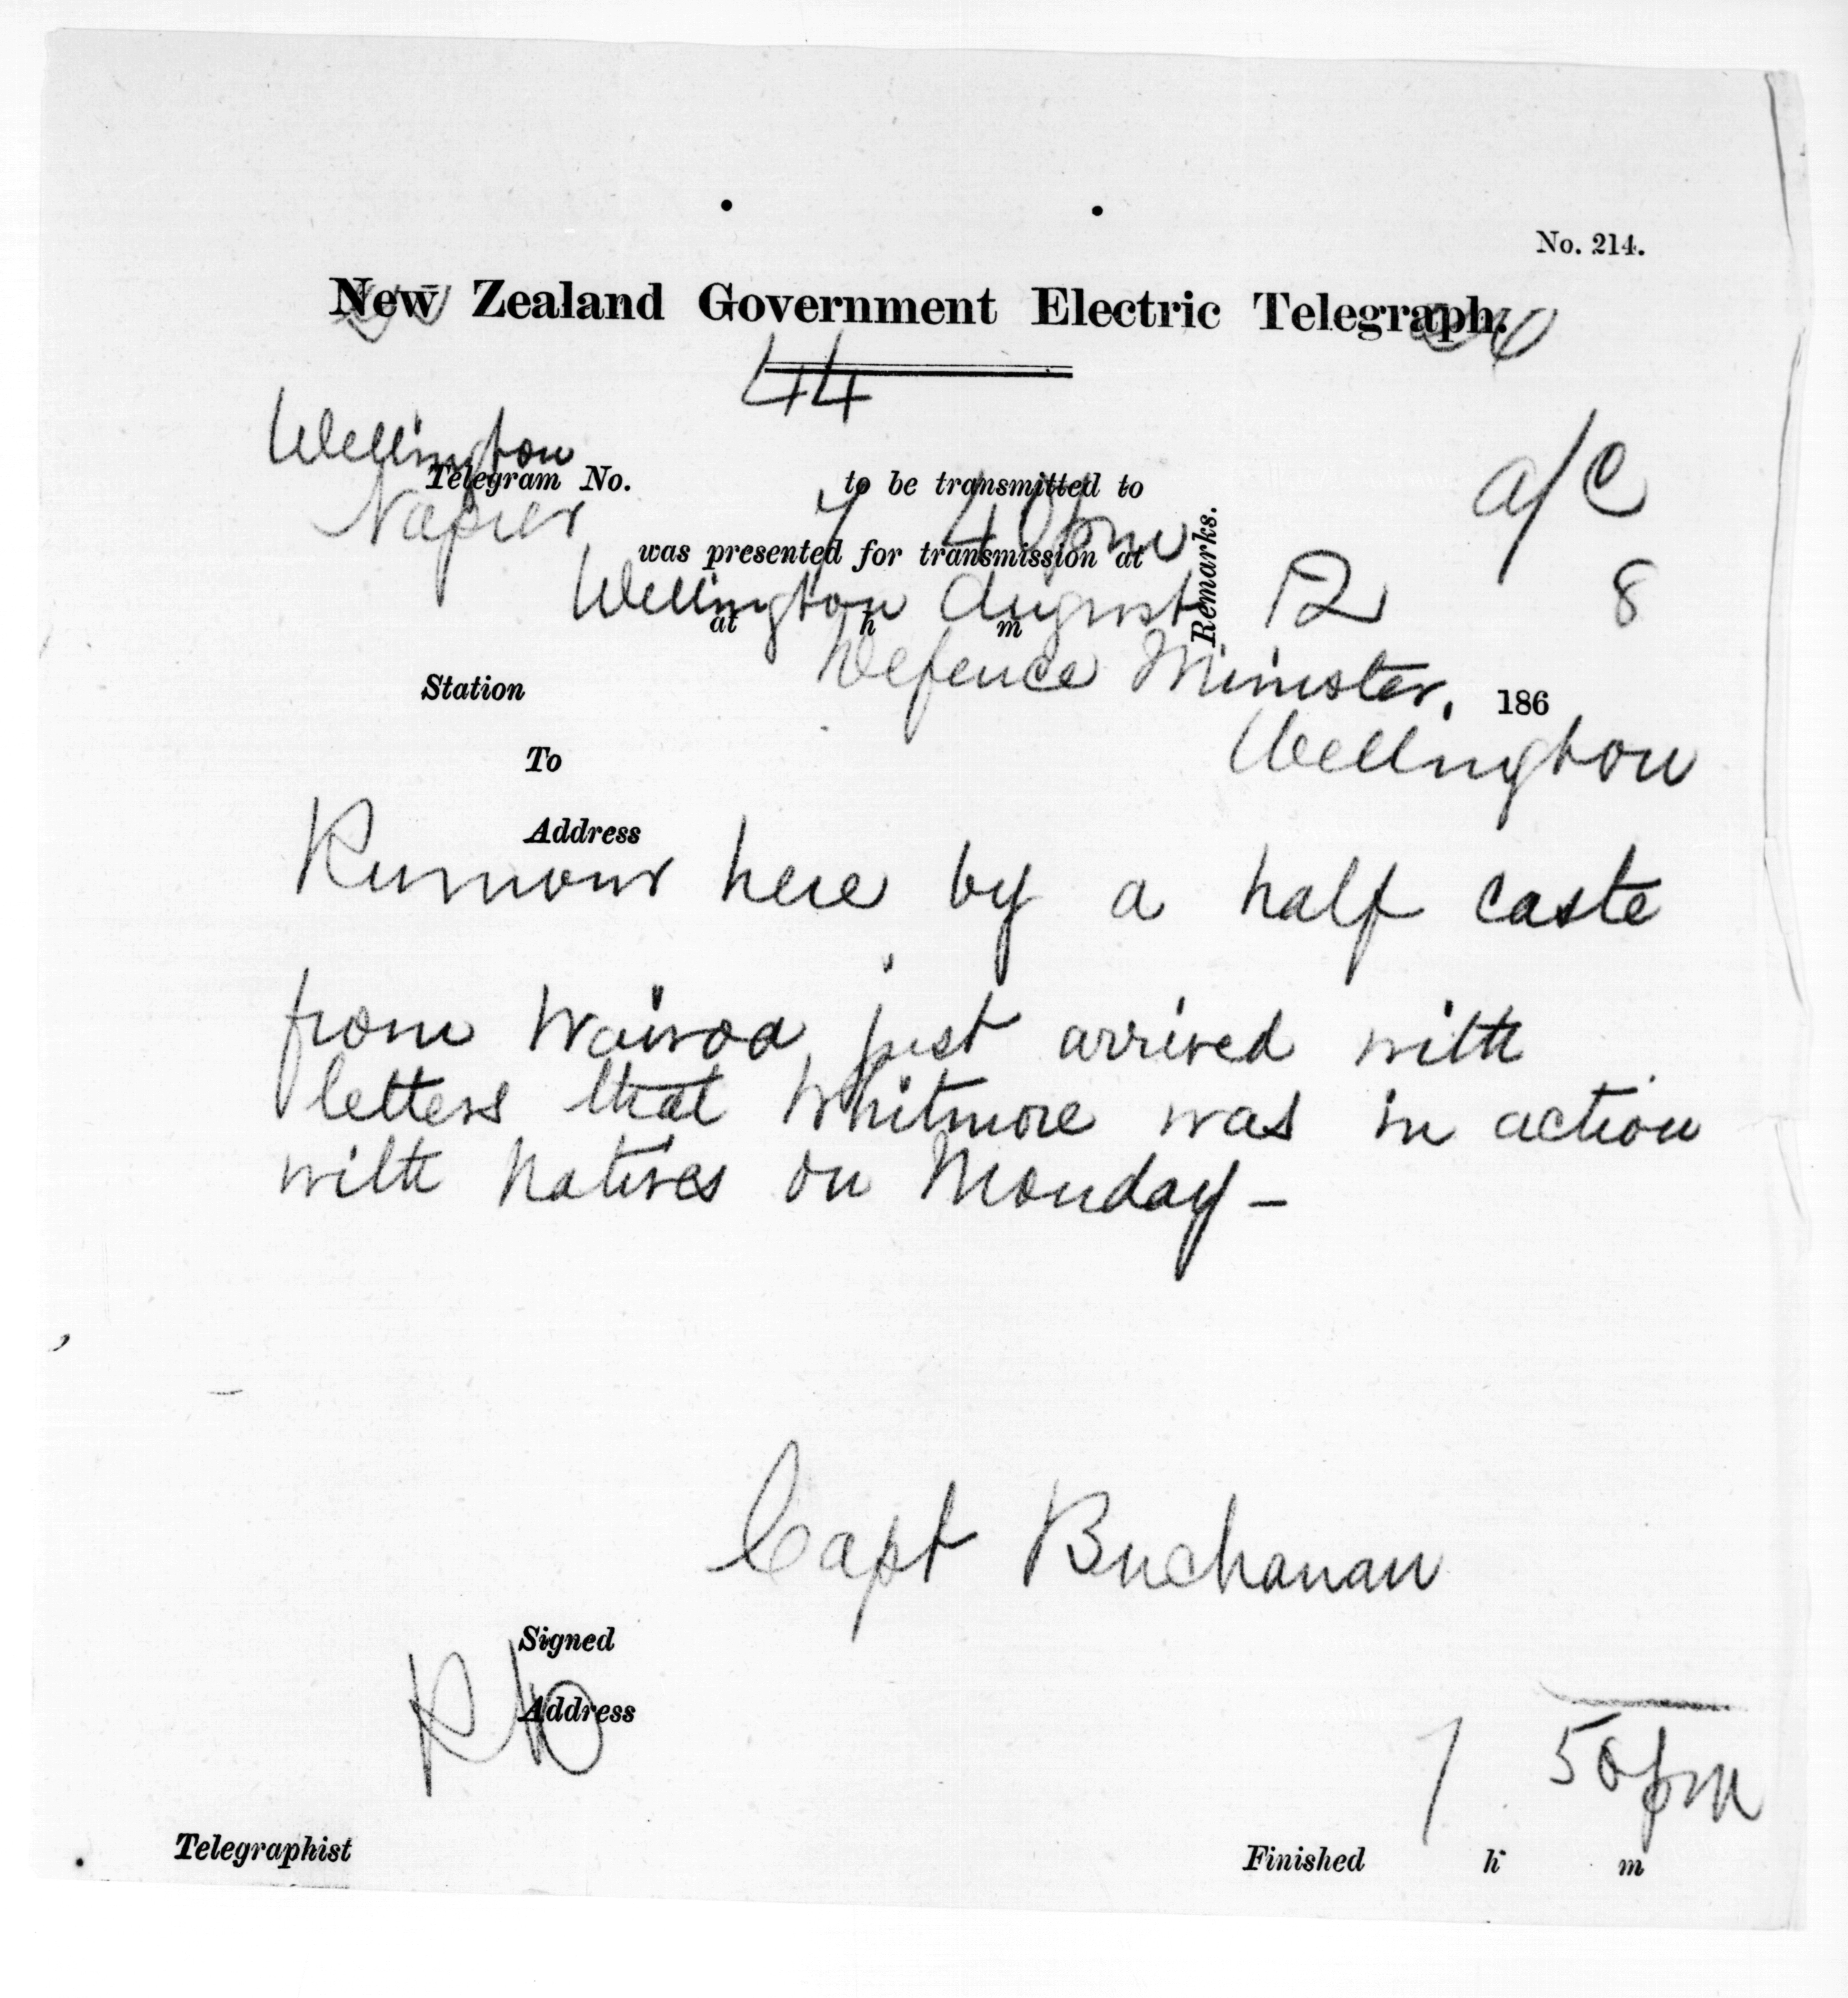 No. 214.
New Zealand Government Electric Telegraph.
44
Wellington
Telegram No. to be transmitted to
a/c
Napier 7 40pm
was presented for transmission at
Remarks.
Wellington August 12 8
at h m
Defence Minister,
Station 186
Wellington
To
Address
Rumour here by a half caste
from Wairoa, just arrived with
letters that Whitmore was in action
with Natives on Monday -
Capt Buchanan
Signed
Address
7 50pm
Telegraphist Finished h m